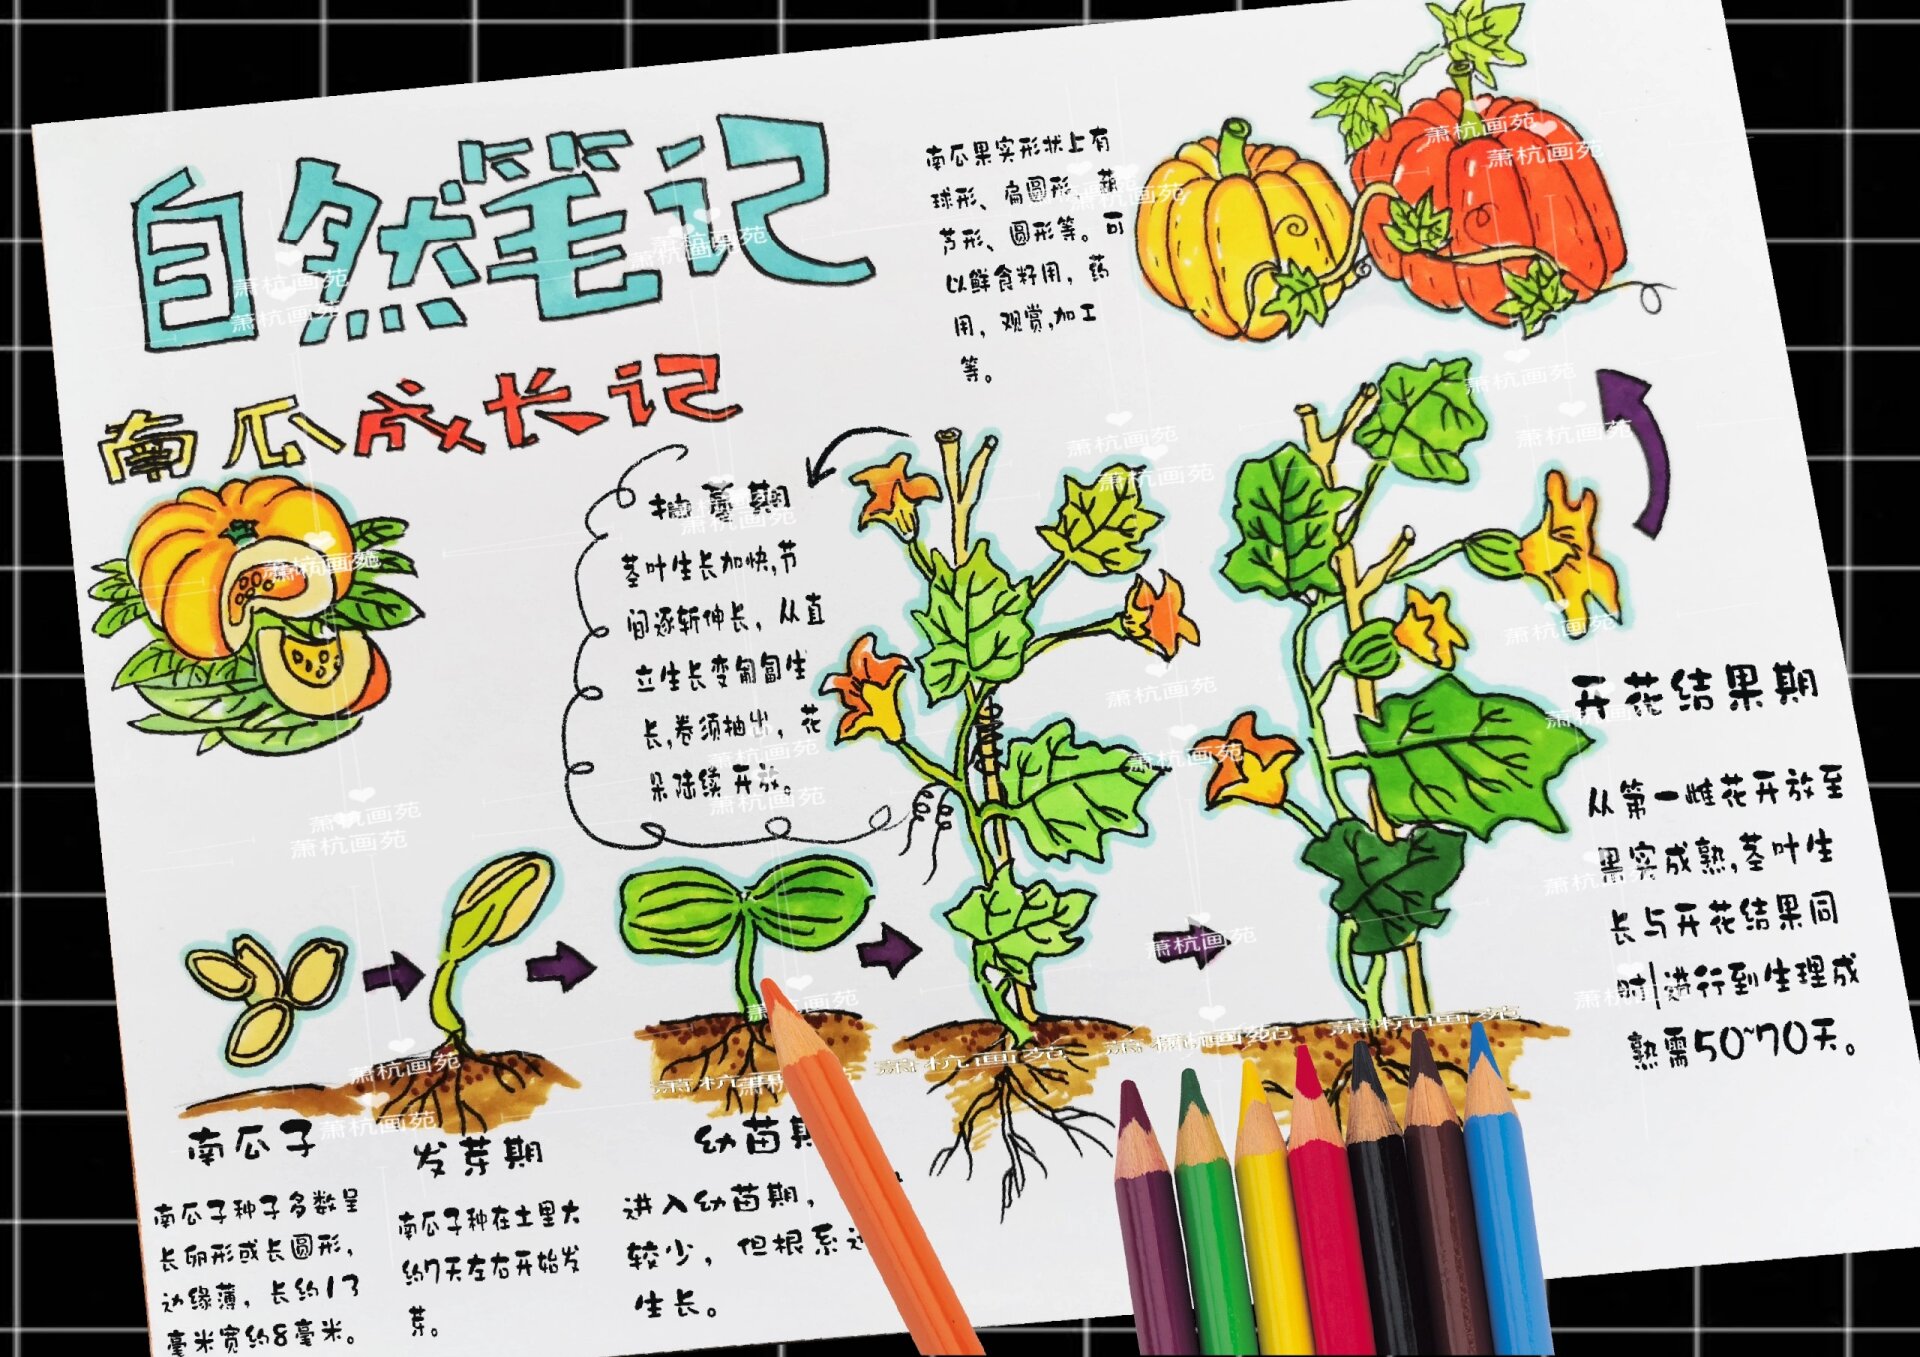 自然笔记
南瓜成长记
南瓜果实形状上有
球形、扁圆形、葫
芦形、圆形等。可
以鲜食籽用，药
用，观赏，加工
等。
抽蔓期
茎叶生长加快，节
间逐斩伸长，从直
立生长变匍富生
长，卷须抽出，花
朵陆续开放。
开花结果期
从第一雌花开放至
果实成熟，茎叶生
长与开花结果同
时进行到生理成
熟需50~70天。
南瓜子
南瓜子种子多数呈
长卵形或长圆形，
边缘薄，长约13
毫米宽约8毫米。
发芽期
南瓜子种在土里大
约7天左右开始发
芽。
幼苗期
进入幼苗期，
较少，但根系
生长。
萧杭画苑